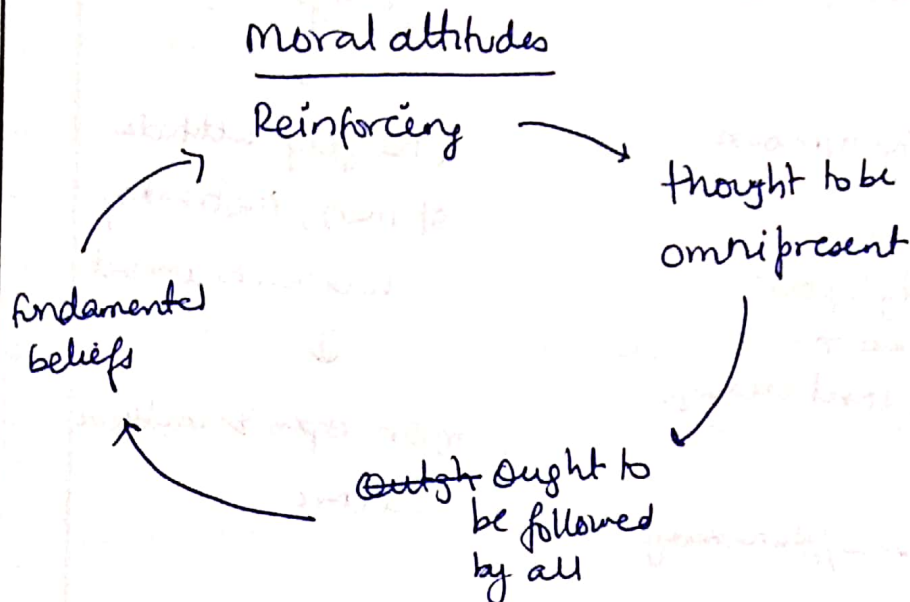 Moral attitudes
Reinforcing
thought to be
omnipresent
ought to
be followed
by all
fundamental
beliefs